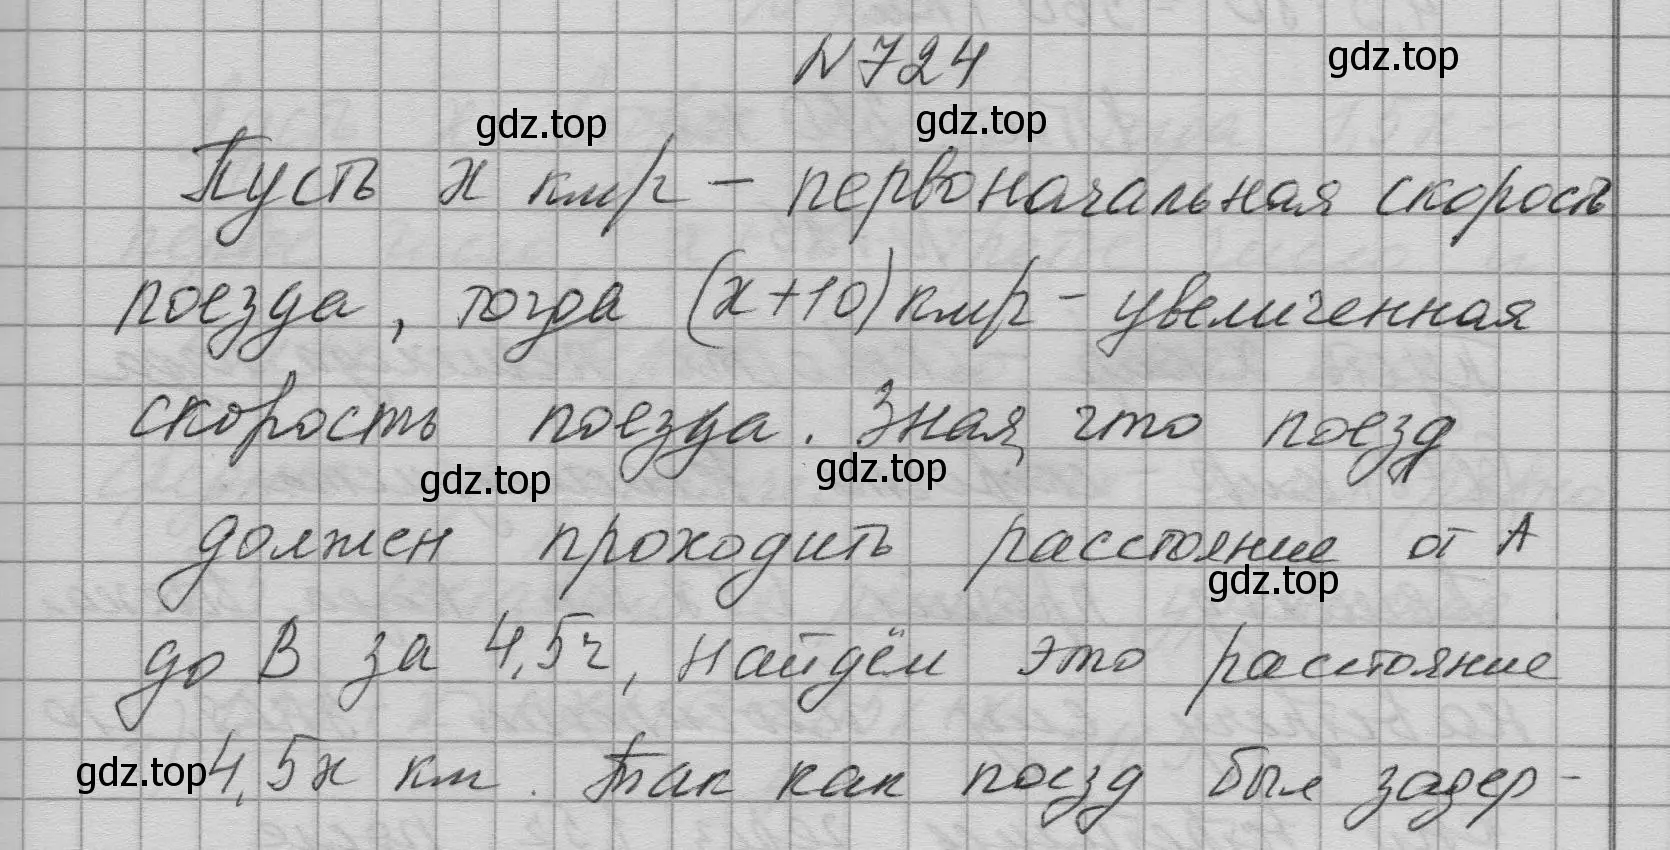 N 724
gdz.top
gdz.top
gdz.top
Пусть x км/г – первоначальная скорость
поезда, тогда (x+10) км/г – увеличенная
скорость поезда. Зная, что поезд
gdz.top
gdz.top
должен проходить расстояние от А
gdz.top
до В за 4,5 ч, найдём это расстояние
gdz.top
4,5x км. Так как поезд был задер-